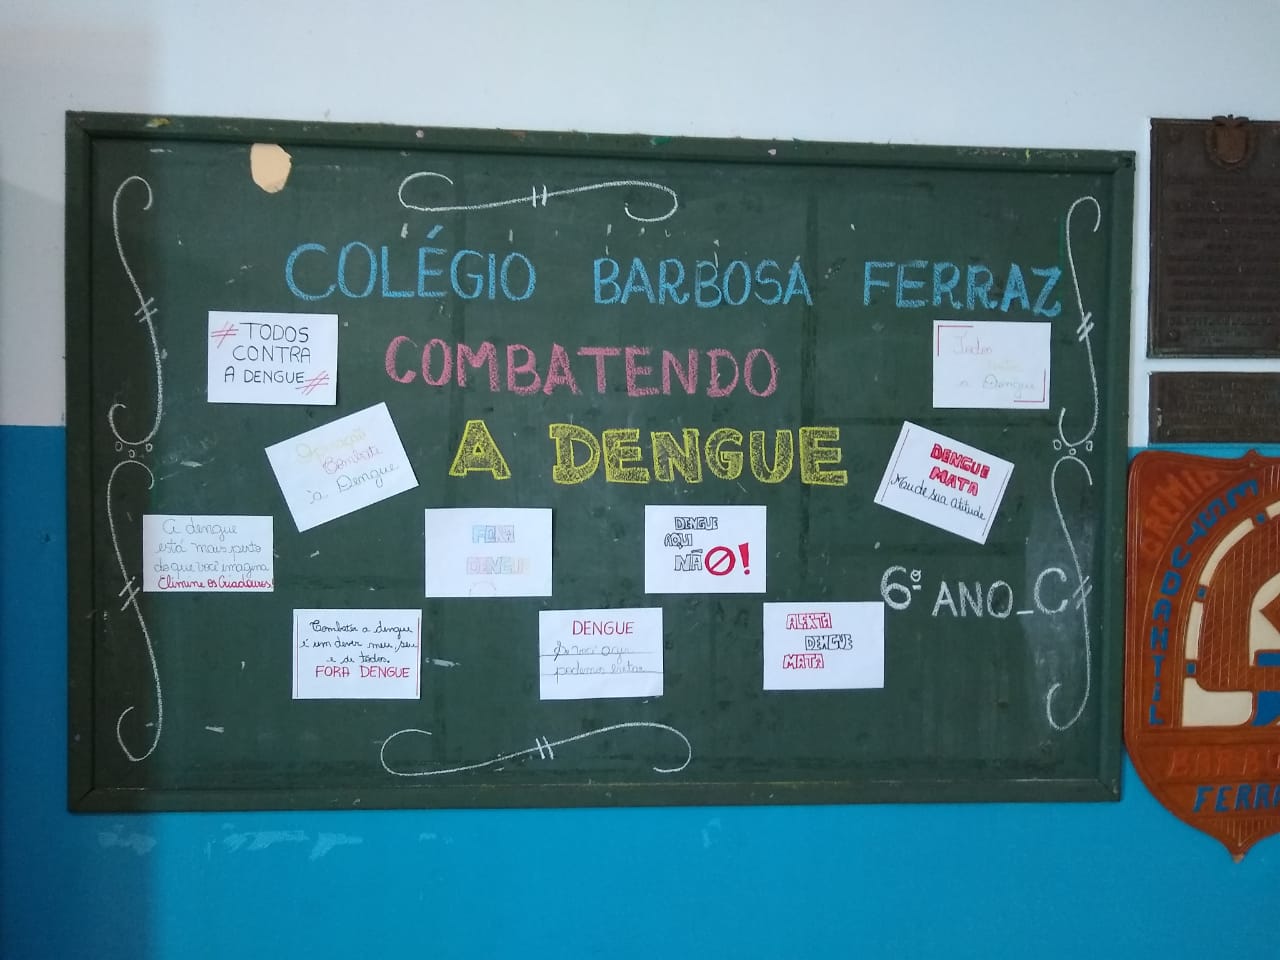 COLÉGIO BARBOSA FERRAZ
COMBATENDO
A DENGUE
6º ANO_C
#TODOS
CONTRA
A DENGUE#
Todos
a Dengue
Operação
Combate
à Dengue
DENGUE
MATA
Mude sua atitude
A dengue
está mais perto
do que você imagina
Elimine os Criadouros!
FORA
DENGUE
DENGUE
AQUI
NÃO!
Combater a dengue
é um dever meu, seu
e de todos.
FORA DENGUE
DENGUE
Se você agir
podemos evitar
ALERTA
DENGUE
MATA
GREMIO
ESTUDANTIL
FERRA